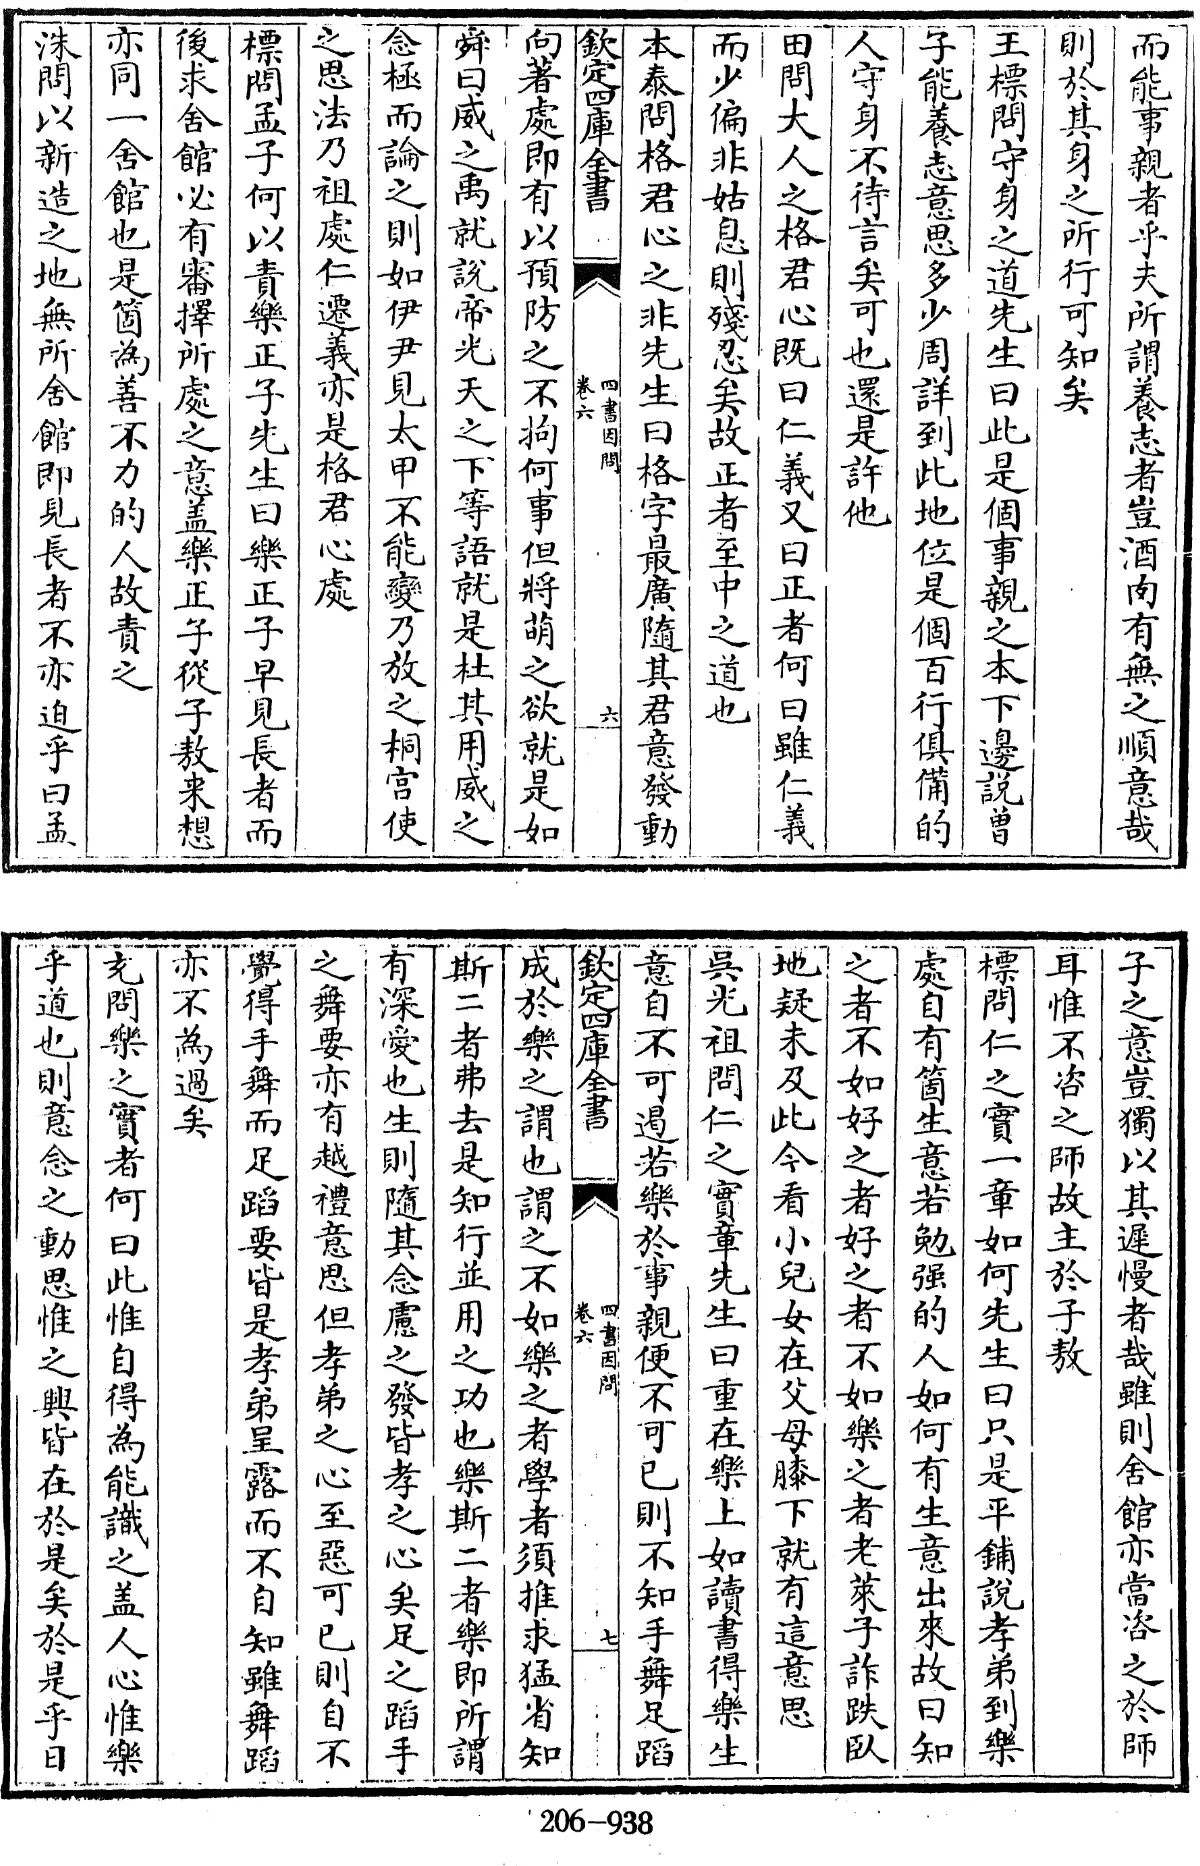 而能事親者乎夫所謂養志者豈酒肉有無之順意哉
則於其身之所行可知矣
王標問守身之道先生曰此是個事親之本下邊説曾
子能養志意思多少周詳到此地位是個百行俱備的
人守身不待言矣可也還是許他
田問大人之格君心既曰仁義又曰正者何曰雖仁義
而少偏非姑息則殘忍矣故正者至中之道也
本泰問格君心之非先生曰格字最廣隨其君意發動
欽定四庫全書
四書因問
卷六
六
向著處即有以預防之不拘何事但將萌之欲就是如
舜曰威之禹就説帝光天之下等語就是杜其用威之
念極而論之則如伊尹見太甲不能變乃放之桐宫使
之思法乃祖處仁遷義亦是格君心處
標問孟子何以責樂正子先生曰樂正子早見長者而
後求舍館必有審擇所處之意盖樂正子從子敖来想
亦同一舍館也是箇為善不力的人故責之
洙問以新造之地無所舍館即見長者不亦迫乎曰孟
子之意豈獨以其遲慢者哉雖則舍館亦當咨之於師
耳惟不咨之師故主於子敖
標問仁之實一章如何先生曰只是平鋪説孝弟到樂
處自有箇生意若勉强的人如何有生意出來故曰知
之者不如好之者好之者不如樂之者老萊子詐跌臥
地疑未及此今看小兒女在父母膝下就有這意思
吳光祖問仁之實章先生曰重在樂上如讀書得樂生
意自不可遏若樂於事親便不可已則不知手舞足蹈
欽定四庫全書
四書因問
卷六
七
成於樂之謂也謂之不如樂之者學者須推求猛省知
斯二者弗去是知行並用之功也樂斯二者樂即所謂
有深愛也生則隨其念慮之發皆孝之心矣足之蹈手
之舞要亦有越禮意思但孝弟之心至惡可已則自不
覺得手舞而足蹈要皆是孝弟呈露而不自知雖舞蹈
亦不為過矣
充問樂之實者何曰此惟自得為能識之盖人心惟樂
乎道也則意念之動思惟之興皆在於是矣於是乎日
206-938